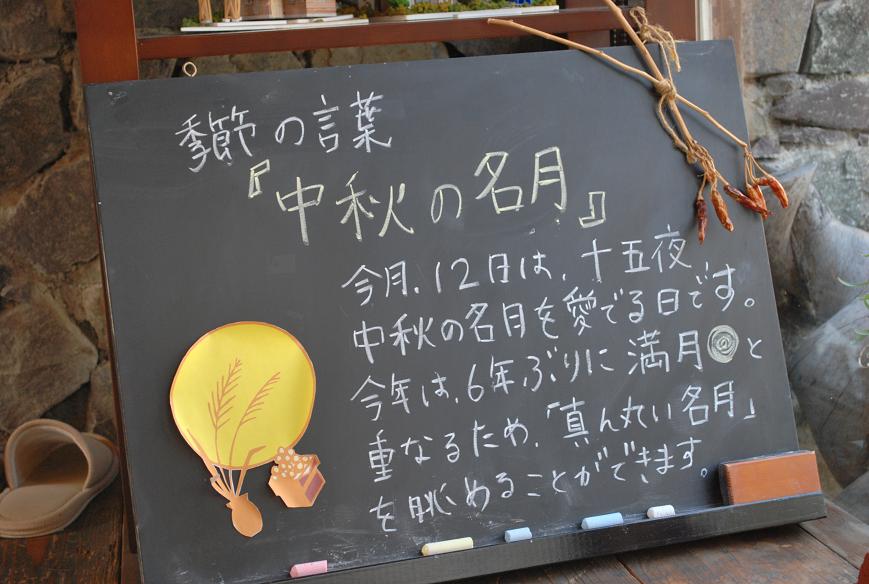 季節の言葉
『中秋の名月』
今月、12日は、十五夜、
中秋の名月を愛でる日です。
今年は、6年ぶりに満月と
重なるため、「真ん丸い名月」
を眺めることができます。